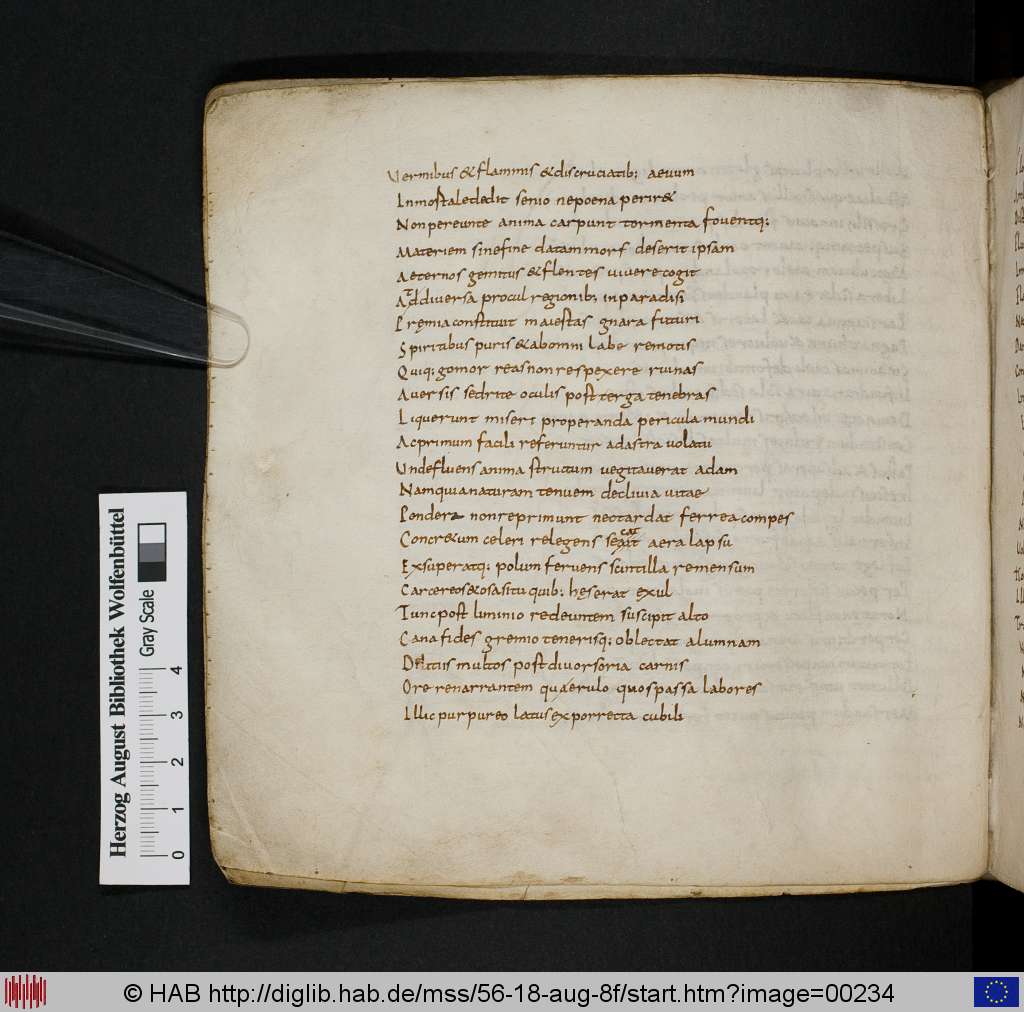 Vermibus & flammis & discruciatib; aevum
Inmortale dedit senio ne poena perir&
Non pereunte anima carpunt tormenta foventq;
Materiem sine fine datam mors deserit ipsam
Aeternos gemitus & flentes vivere cogit
At diversa procul regionib; in paradisi
Premia constituit maiestas gnara futuri
Spiritibus puris & ab omni labe remotis
Quiq; gomorreas non respexere ruinas
Aversis sed rite oculis post terga tenebras
Liquerunt miseri properanda pericula mundi
Ac primum facili referuntur ad astra volatu
Unde fluens anima structum vegitaverat adam
Nam quia naturam tenuem declivia vitae
Pondera non reprimunt nec tardat ferrea compes
Concr&um celeri relegens secat aera lapsu
Exsuperatq; polum fervens scintilla remensum
Carcereos &osa situ quib; hęserat exul
Tunc post luminio redeuntem suscipit alto
Cana fides gremio tenerisq; oblectat alumnam
multos post divorsoria carnis
Ore renarrantem quaerulo quos passa labores
Illic purpureo latus exporrecta cubili
Herzog August Bibliothek Wolfenbüttel
Gray Scale
0 1 2 3 4
© HAB http://diglib.hab.de/mss/56-18-aug-8f/start.htm?image=00234